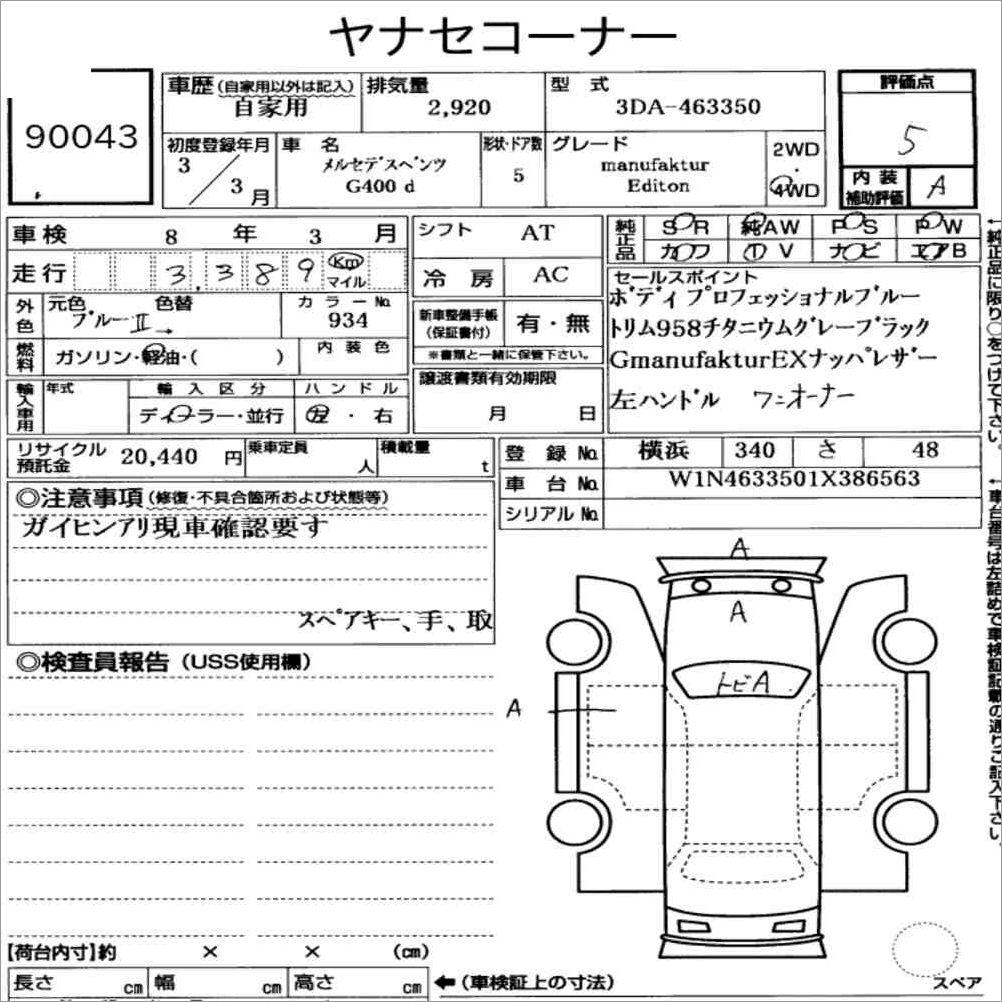 ヤナセコーナー
90043
車歴 (自家用以外は記入)
自家用
排気量
2,920
型 式
3DA-463350
評価点
5
内装
補助評価
A
初度登録年月
3 / 3 月
車 名
メルセデスベンツ
G400 d
形状・ドア数
5
グレード
manufaktur
Editon
2WD
4WD
車検 8 年 3 月
走行 3,389 Km マイル
外色 元色 色替
ブルーⅡ→
カラーNo.
934
燃料 ガソリン・軽油・( )
内装色
輸入車用 年式
輸入区分
ディーラー・並行
ハンドル
左・右
シフト AT
冷房 AC
新車整備手帳
(保証書付)
有・無
※書類と一緒に保管下さい。
譲渡書類有効期限
月 日
純正品 SR 純AW PS PW
カワ TV ナビ エアB
セールスポイント
ボディプロフェッショナルブルー
トリム958チタニウムグレーブラック
GmanufakturEXナッパレザー
左ハンドル ワンオーナー
←純正品に限り○をつけて下さい。
リサイクル
預託金
20,440 円
乗車定員
人
積載量
t
登録No. 横浜 340 さ 48
車台No. W1N4633501X386563
シリアルNo.
←車台番号は左詰めで車検証記載の通りご記入下さい。
◎注意事項(修復・不具合箇所および状態等)
ガイヒンアリ現車確認要す
スペアキー、手、取
◎検査員報告(USS使用欄)
A
A
トビA
A
【荷台内寸】約 × × (cm)
長さ cm 幅 cm 高さ cm
←(車検証上の寸法)
スペア